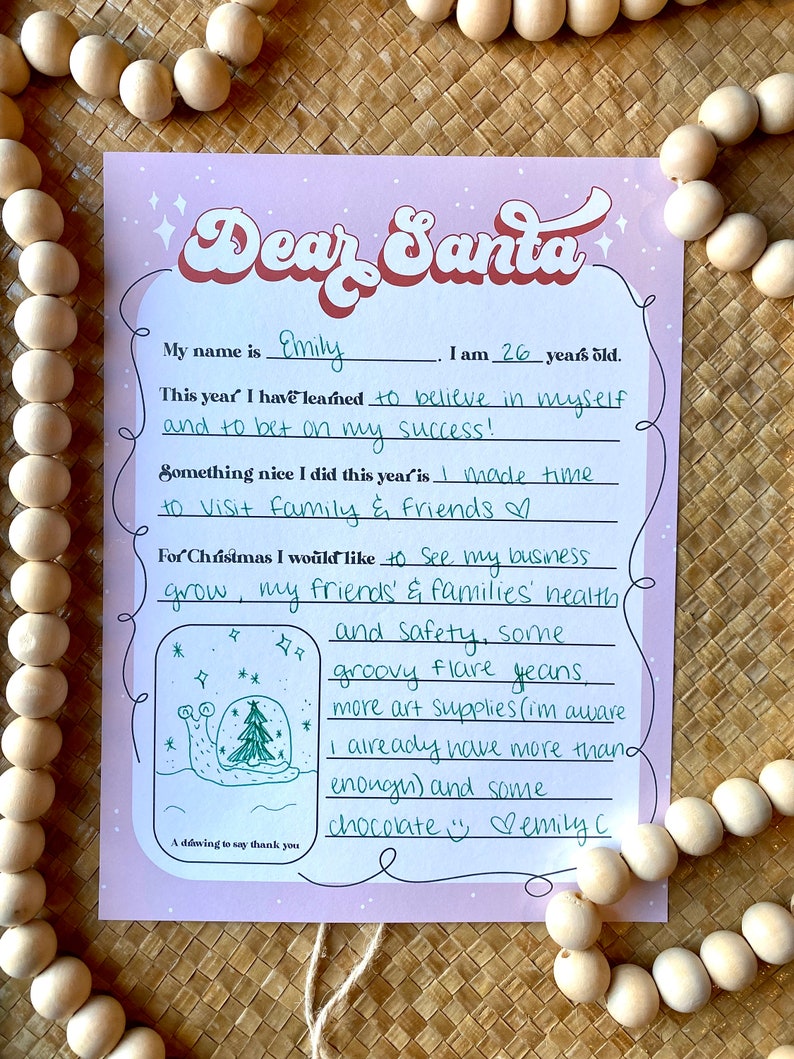 Dear Santa
My name is Emily. I am 26 years old.
This year I have learned to believe in myself
and to bet on my success!
Something nice I did this year is I made time
to visit family & friends ♡
For Christmas I would like to see my business
grow, my friends' & families' health
and safety, some
groovy flare jeans,
more art supplies (im aware
i already have more than
enough) and some
chocolate :) ♡ emily C
A drawing to say thank you